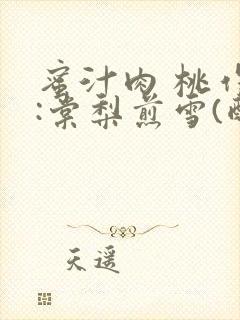 蜜汁肉桃作
:棠梨煎雪(
天遥